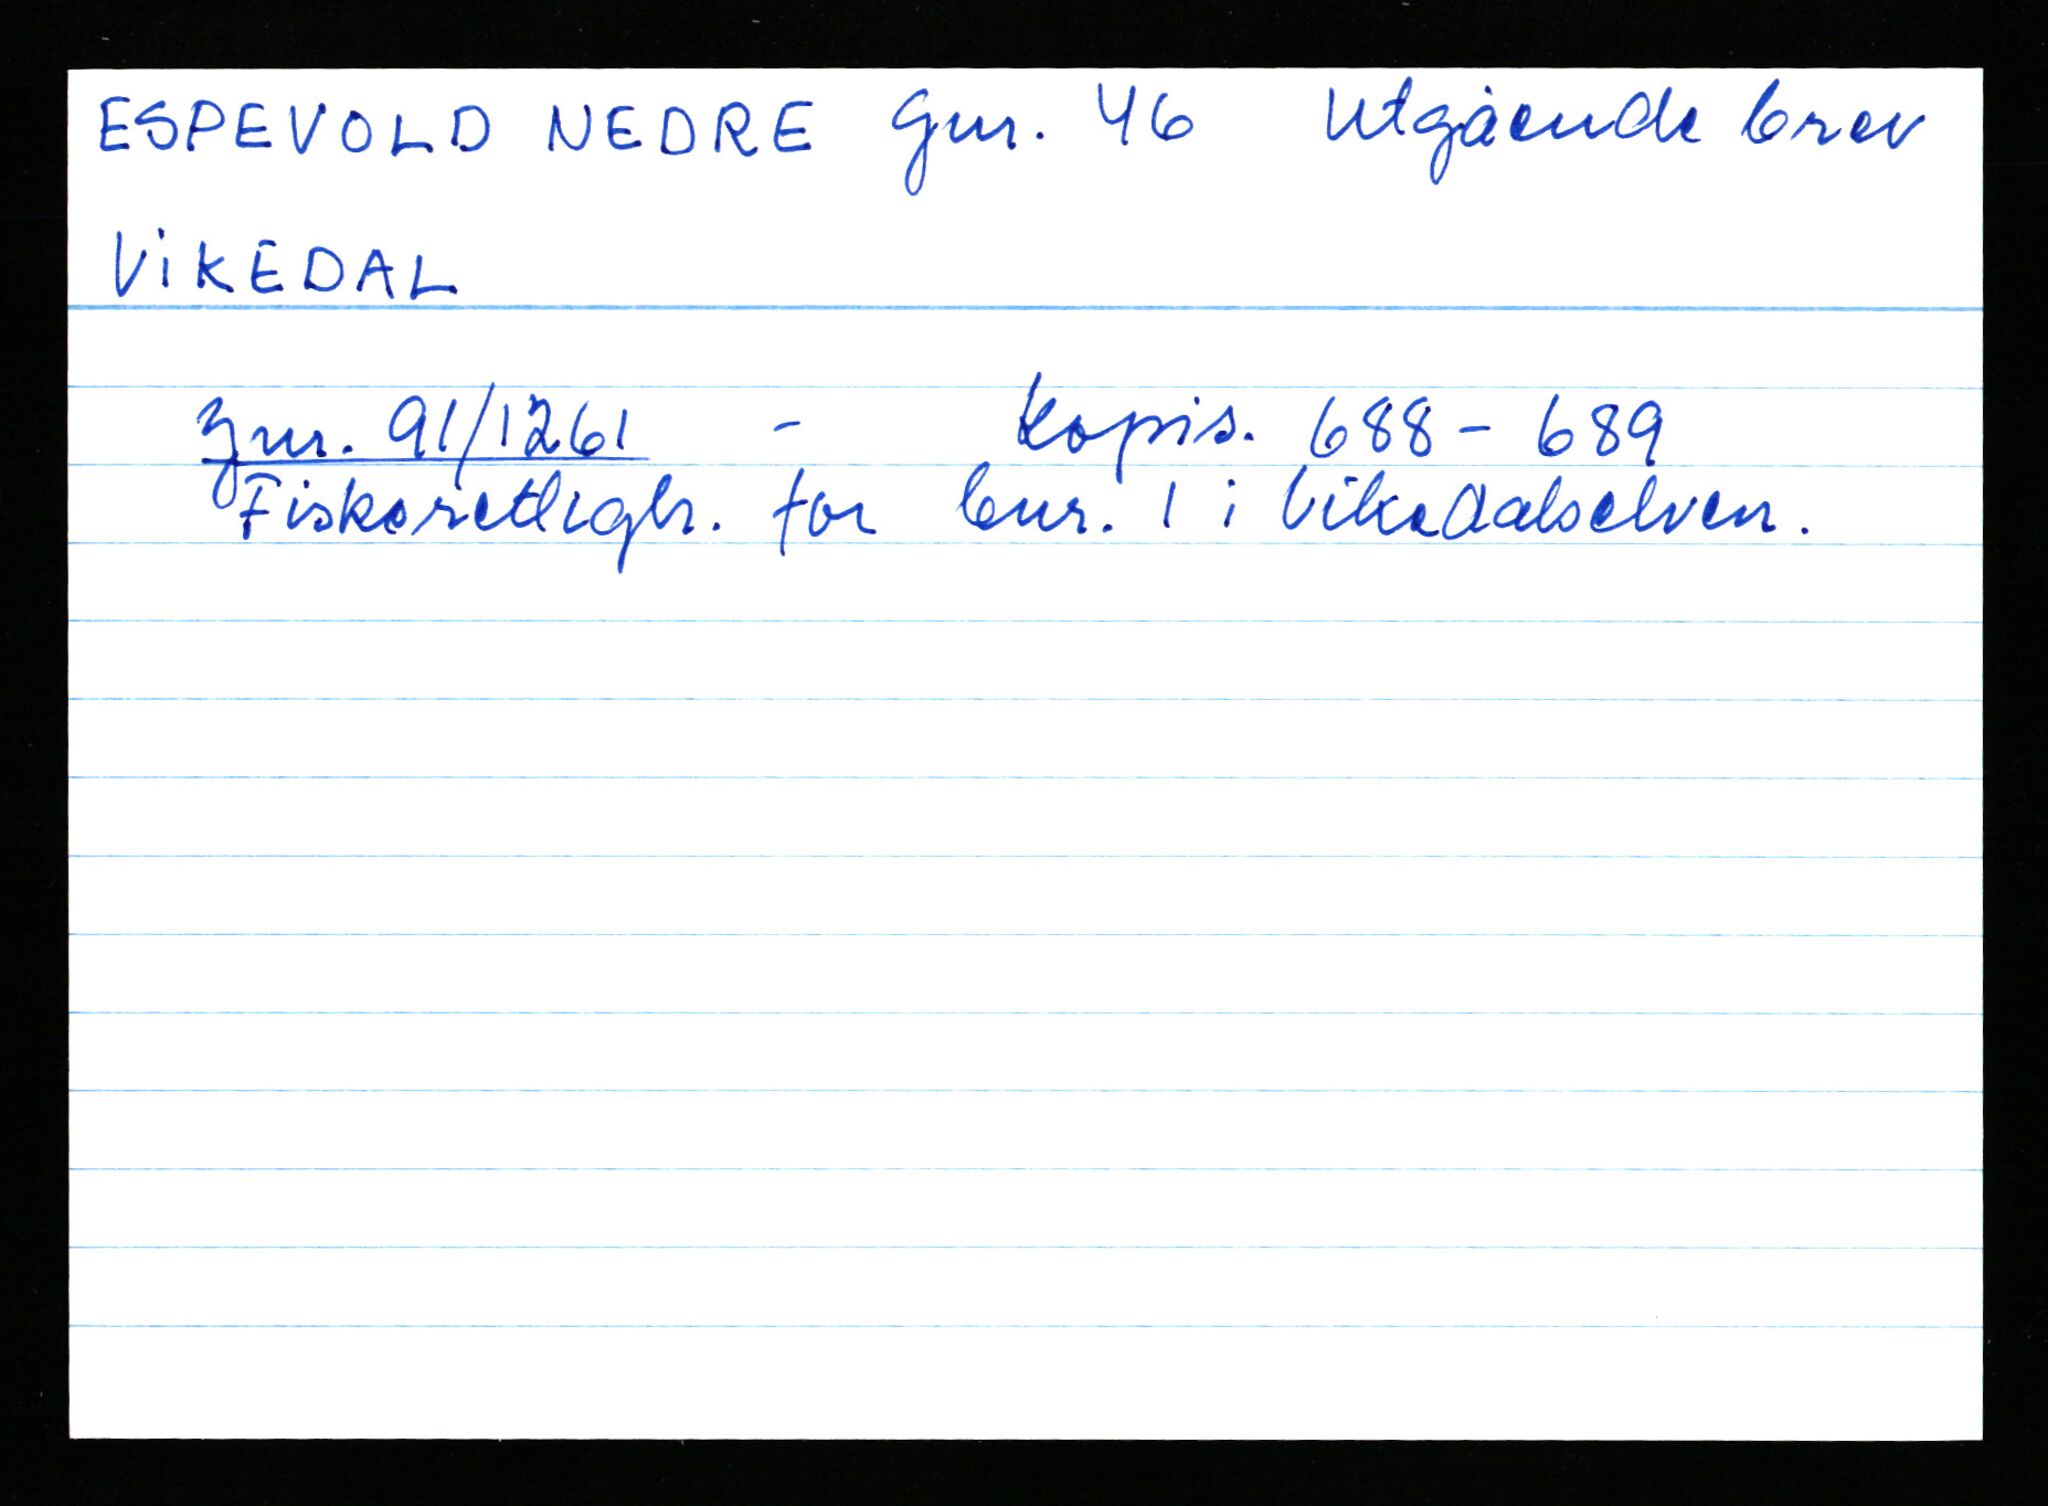 ESPEVOLD NEDRE Gnr. 46 Utgående brev
ViKEDAL
Jnr. 91/1261 - Kopis. 688 - 689
Fiskeretligh. for bnr. 1 i Vikedalselven.